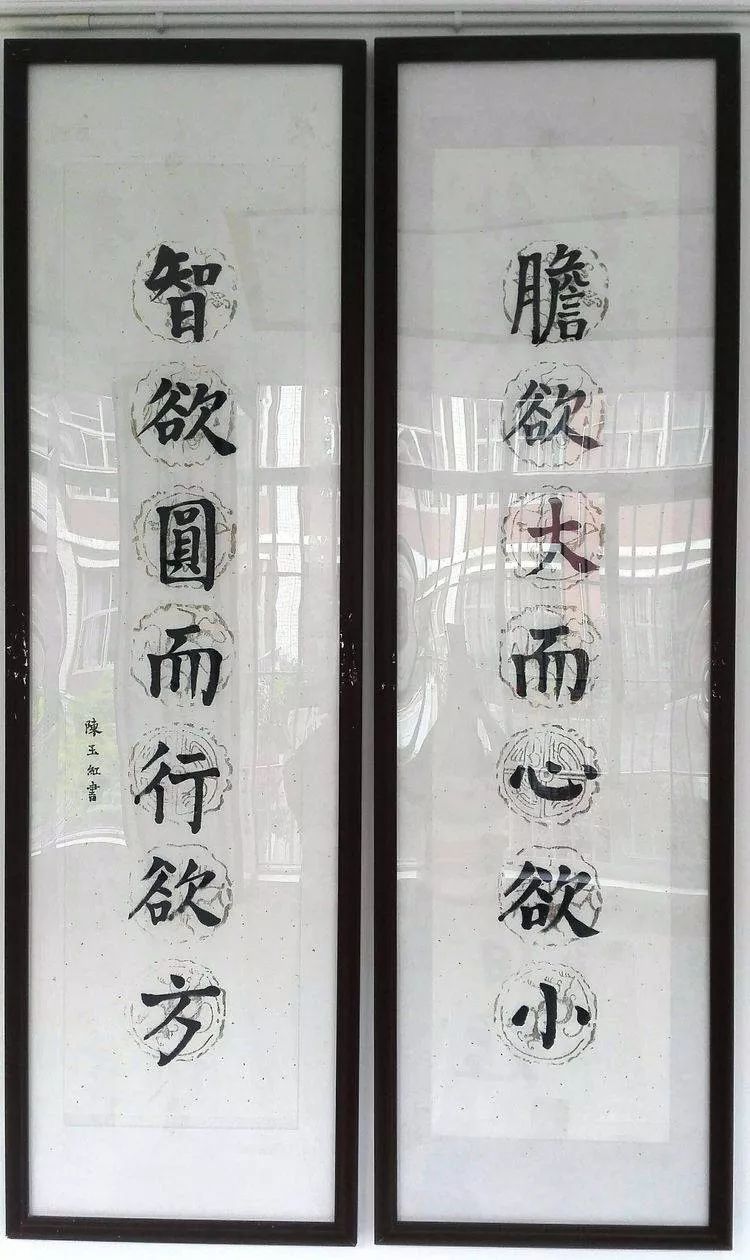 膽欲大而心欲小
智欲圓而行欲方
陳玉紅書